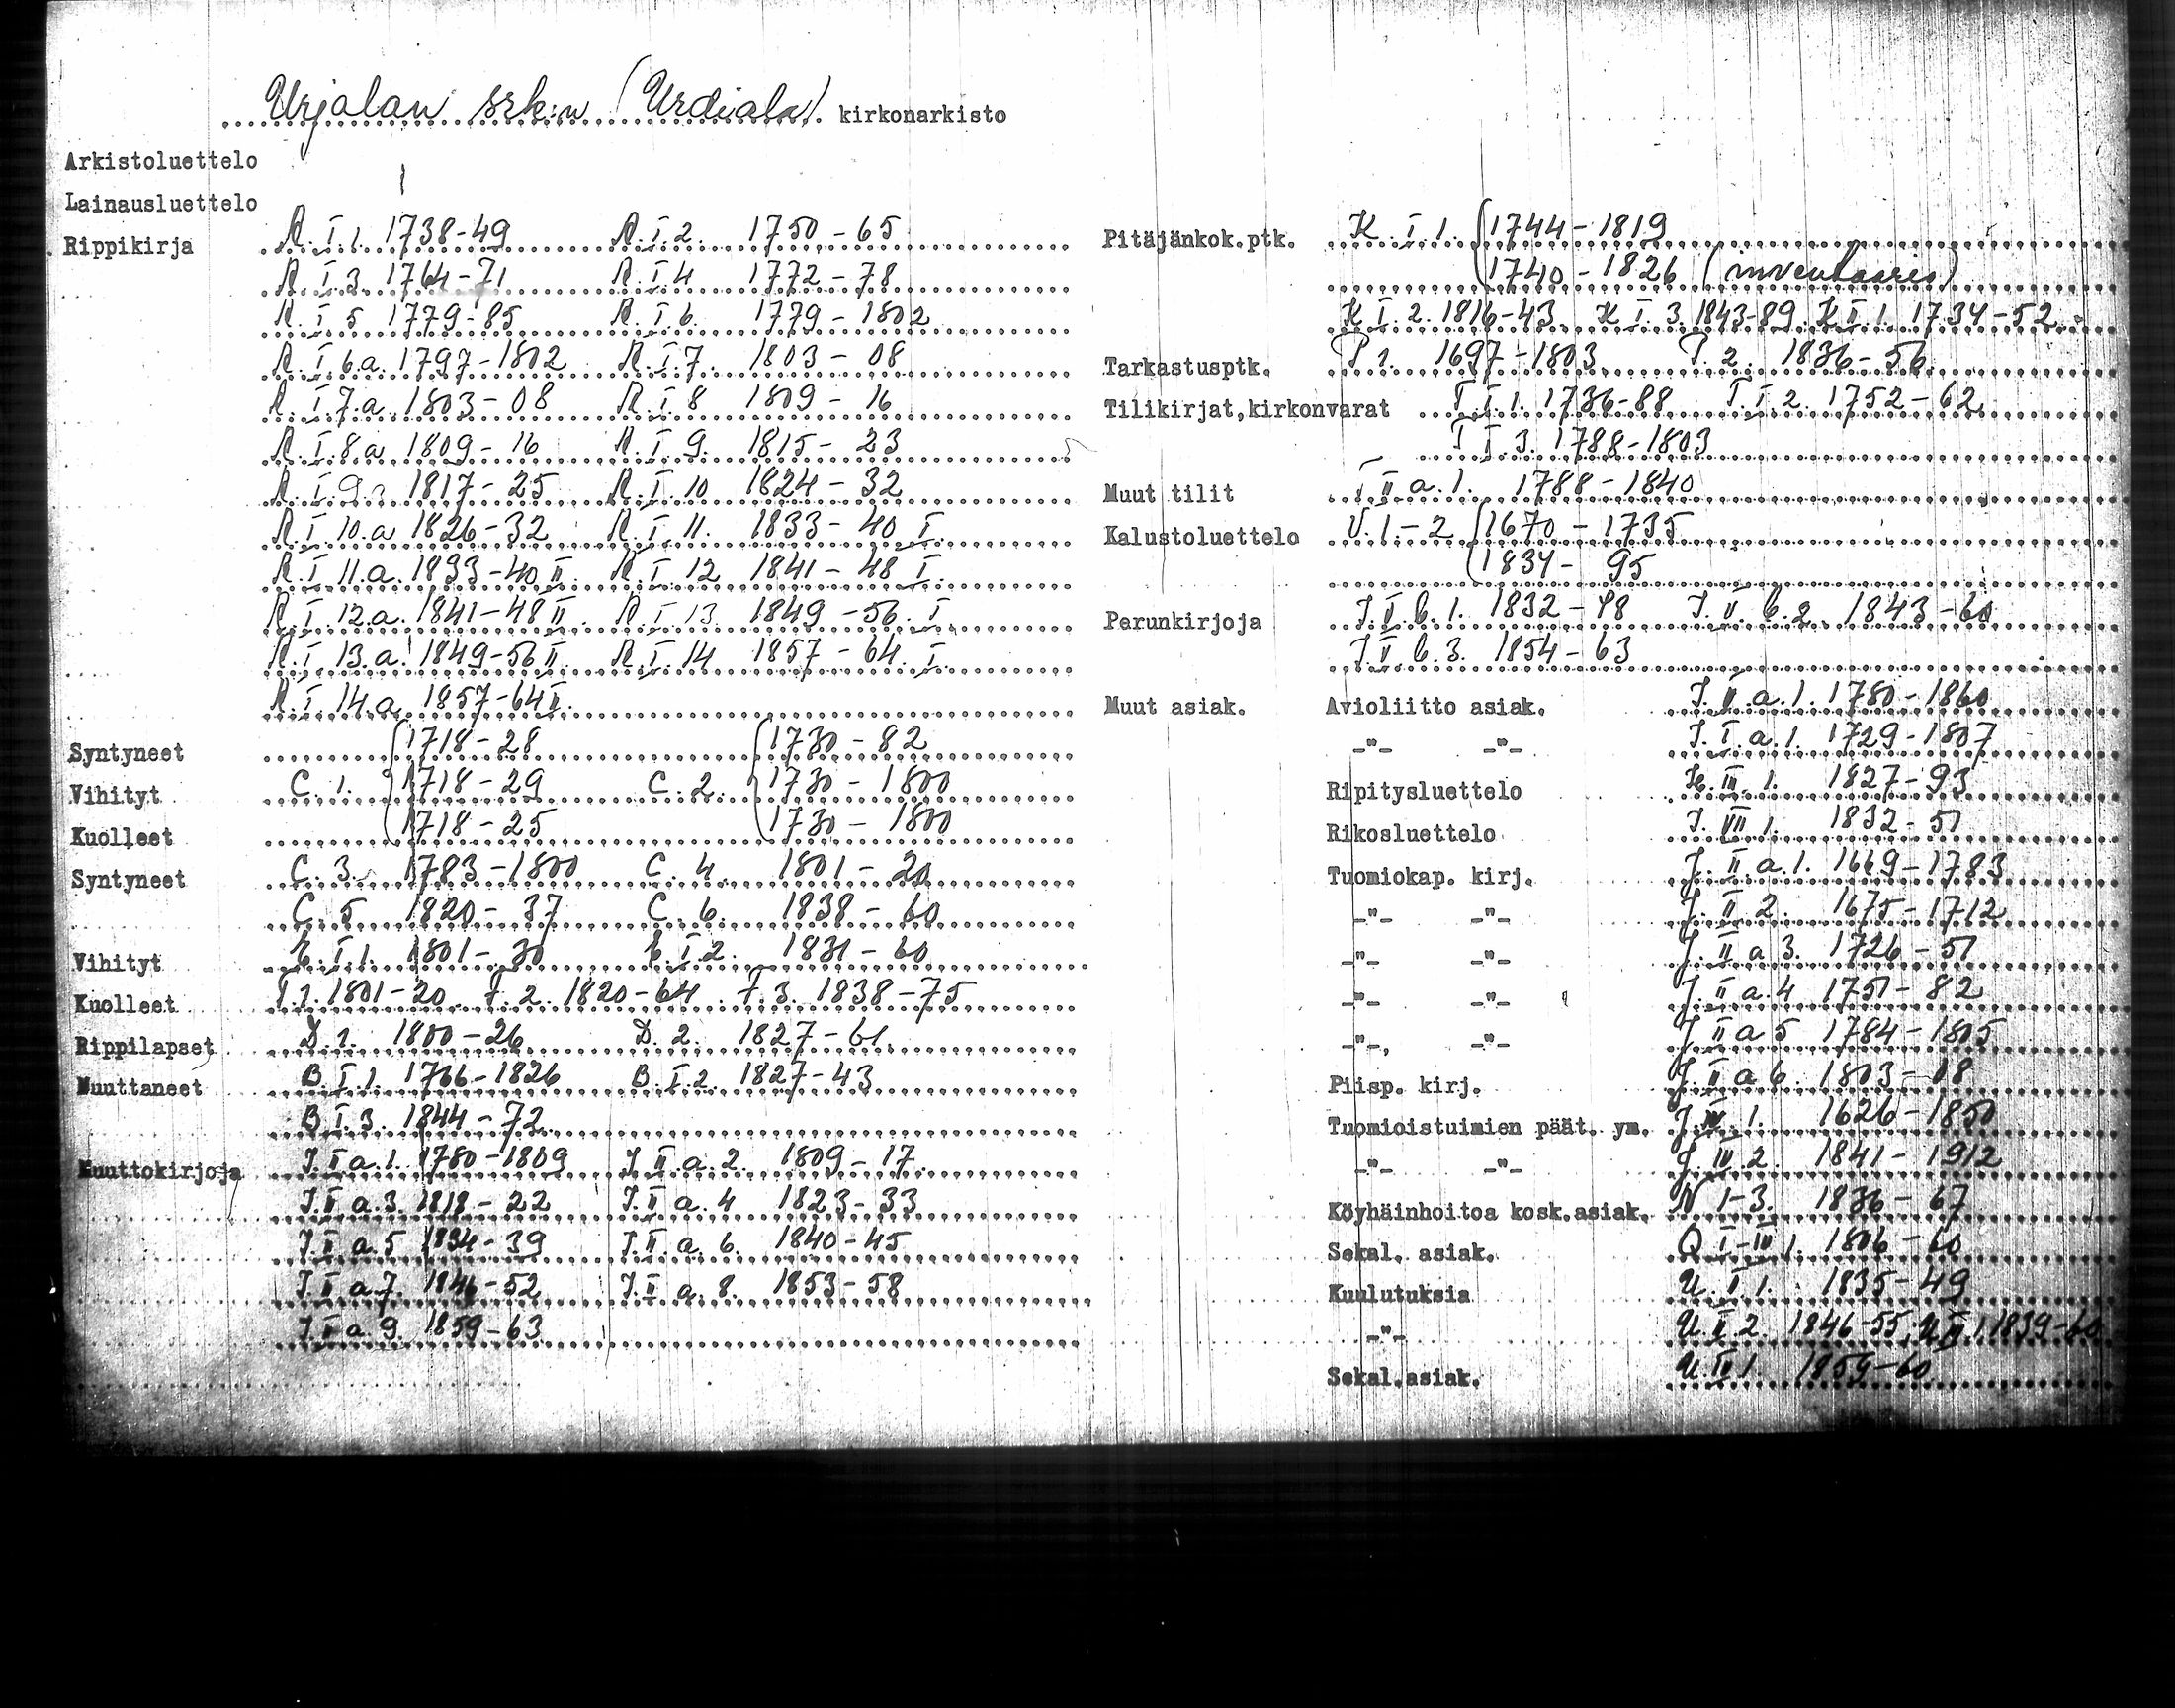 Urjalan srk:n (Urdiala) kirkonarkisto
Arkistoluettelo
Lainausluettelo
Rippikirja R. I. 1. 1738-49 R. I. 2. 1750-65
R. I. 3. 1764-71 R. I. 4 1772-78
R. I. 5 1779-85 R. I. 6. 1779-1802
R. I. 6.a. 1797-1802 R. I. 7. 1803-08
R. I. 7.a. 1803-08 R. I. 8 1809-16
R. I. 8.a 1809-16 R. I. 9. 1815-23
R. I. 9.a 1817-25 R. I. 10 1824-32
R. I. 10.a 1826-32 R. I. 11. 1833-40 I.
R. I 11.a. 1833-40 II. R. I. 12 1841-48 I.
R. I. 12.a. 1841-48 II. R. I. 13. 1849-56. I.
R. I. 13.a. 1849-56 II. R. I. 14 1857-64. I.
R. I. 14.a 1857-64 II.
Syntyneet 1718-28 1730-82
Vihityt C. 1. 1718-29 C. 2. 1730-1800
Kuolleet 1718-25 1730-1800
Syntyneet C. 3. 1783-1800 C. 4. 1801-20
C. 5 1820-37 C. 6. 1838-60
Vihityt E. I. 1. 1801-30 E. I. 2. 1831-60
Kuolleet F. 1. 1801-20. F. 2. 1820-64. F. 3. 1838-75
Rippilapset D. 1. 1800-26 D. 2. 1827-61.
Muuttaneet B. I. 1. 1766-1826 B. I. 2. 1827-43
B. I. 3. 1844-72.
Muuttokirjoja J. II a. 1. 1780-1809 J. II. a. 2. 1809-17.
J. II a. 3. 1818-22 J. II. a. 4 1823-33
J. II. a. 5 1834-39 J. II. a. 6. 1840-45
J. II a. 7. 1846-52 J. II. a. 8. 1853-58
J. II a. 9. 1859-63
Pitäjänkok.ptk. K. I. 1. 1744-1819
1740-1826 (inventaario)
K I. 2. 1816-43. K I. 3. 1843-89. K II 1. 1734-52.
Tarkastusptk. P 1. 1697-1803 P. 2. 1836-56
Tilikirjat,kirkonvarat T. I. 1. 1736-88 T. I. 2. 1752-62
T I. 3. 1788-1803
Muut tilit T II a. 1. 1788-1840
Kalustoluettelo V. 1.-2 1670-1735
1834-95
Perunkirjoja J. V. b. 1. 1832-48 J. V. b. 2. 1843-60
J. V b. 3. 1854-63
Muut asiak. Avioliitto asiak. J. II. a. 1. 1780-1860
-"- -"- J. I. a. 1. 1729-1807
Ripitysluettelo H. III. 1. 1827-93
Rikosluettelo J. VII 1. 1832-51
Tuomiokap. kirj. J. II. a. 1. 1669-1783
-"- -"- J. II 2. 1675-1712
-"- -"- J. II a 3. 1726-51
-"- -"- J. II a. 4 1751-82
-"- -"- J. II a 5 1784-1805
Piisp. kirj. J. II a 6. 1803-08
Tuomioistuimien päät. ym. J. IV. 1. 1626-1850
-"- -"- J. IV. 2. 1841-1912
Köyhäinhoitoa kosk.asiak. N 1-3. 1836-67
Sekal. asiak. Q I-IV 1. 1806-60
Kuulutuksia U. I. 1. 1835-49
-"- U. I. 2. 1846-55. 1839-60
Sekal.asiak. U. IV 1. 1859-60